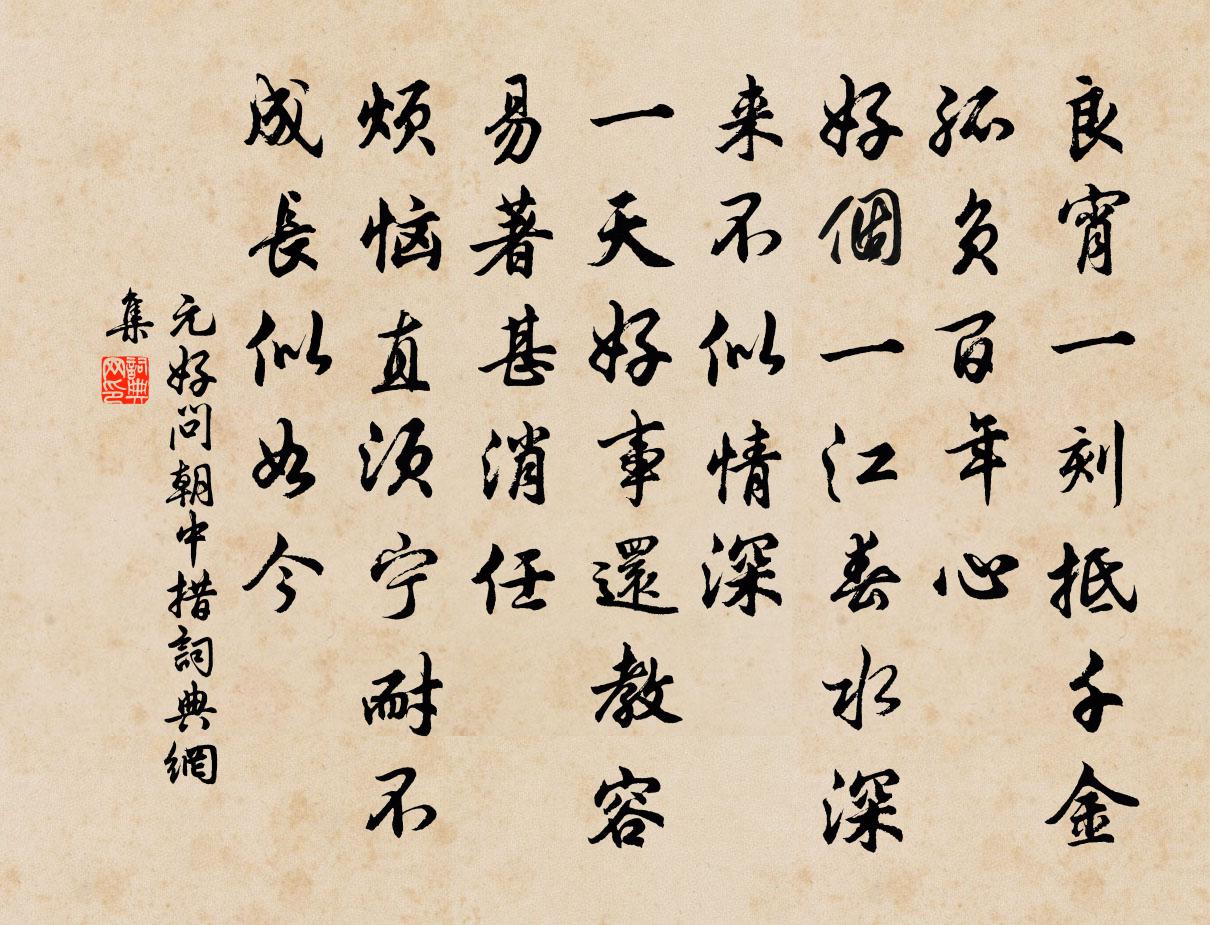 良宵一刻抵千金
孤负百年心
好個一江春水深
来不似情深
一天好事還教容
易著甚消任
烦恼直须宁耐不
成長似如今
元好问朝中措詞典網
集
詞典网印